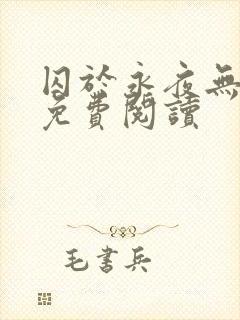 囚於永夜無
免費閱讀
毛書兵